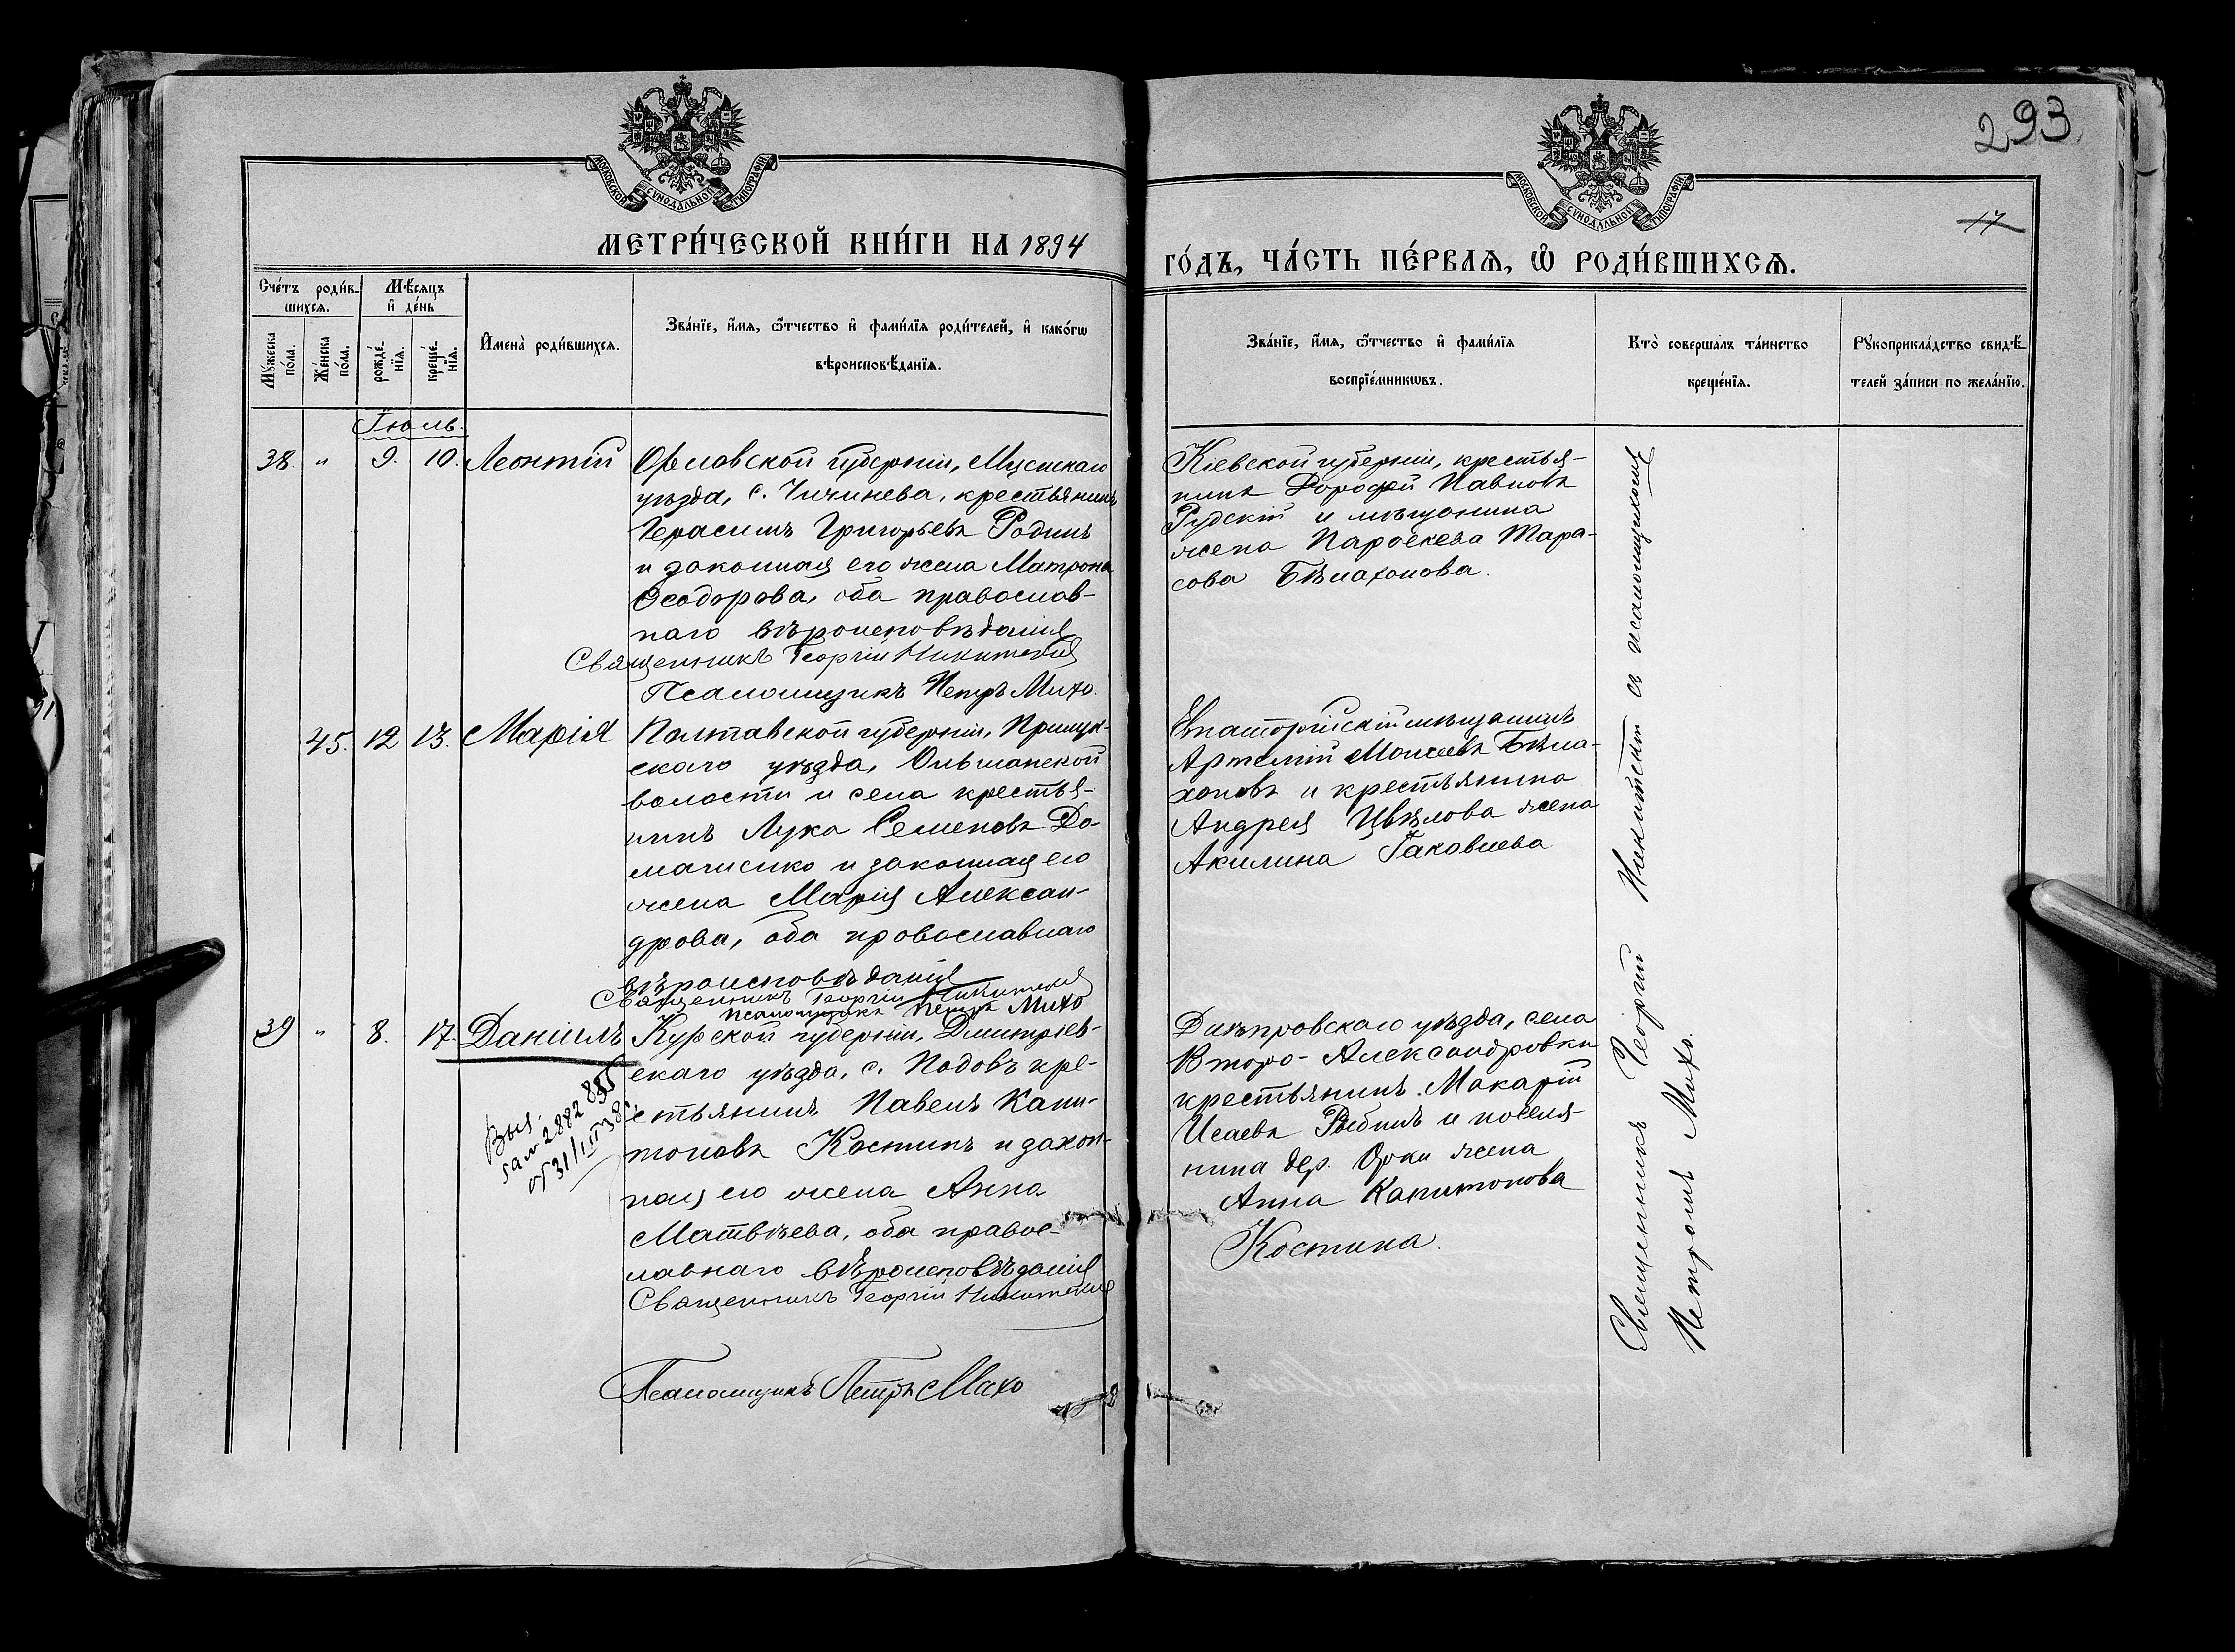 293
17
МОСКОВСКОЙ СѴНОДАЛЬНОЙ ТИПОГРАФІИ
МОСКОВСКОЙ СѴНОДАЛЬНОЙ ТИПОГРАФІИ
МЕТРИ́ЧЕСКОЙ КНИ́ГИ НА 1894
ГО́ДЪ, ЧА́СТЬ ПЕ́РВАѦ, Ѡ РОДИ́ВШИХСѦ.
Сче́тъ роди́в-
шихсѧ.
Мѣ́сѧцъ
и де́нь
Мꙋ́жеска по́ла.
Же́нска по́ла.
рожде́нїѧ.
креще́нїѧ.
Имена̀ роди́вшихсѧ.
Зва́нїе, и́мѧ, ѻ́тчество и фами́лїѧ роди́телей, и како́гѡ
вѣроисповѣ́данїѧ.
Зва́нїе, и́мѧ, ѻ́тчество и фами́лїѧ
воспрїе́мникѡвъ.
Кто̀ соверша́лъ та́инство
креще́нїѧ.
Рꙋкоприкла́дство свидѣ́-
телей за́писи по жела́нїю.
Іюль.
38. " 9. 10. Леонтій
Орловской губерніи, Мценскаго
уѣзда, с. Чичинева, крестьянинъ
Герасимъ Григорьевъ Родинъ
и законная его жена Матрона
Ѳеодорова, оба православ-
наго вѣроисповѣданія
Священникъ Георгій Никитскій
Псаломщикъ Петръ Михо.
Кіевской губерніи, крестья-
нинъ Дорофей Павловъ
Рудскій и мѣщанина
жена Параскева Тара-
сова Бѣлахонова.
45. 12 13. Марія
Полтавской губерніи, Прилук-
скаго уѣзда, Ольшанской
волости и села крестья-
нинъ Лука Семеновъ До-
маченко и законная его
жена Марія Алексан-
дрова, оба православнаго
вѣроисповѣданія
Священникъ Георгій Никитскій
Псаломщикъ Петръ Михо
Евпаторійскій мѣщанинъ
Артемій Моисеевъ Бѣла-
хоновъ и крестьянина
Андрея Цвѣлова жена
Акилина Іаковлева
39 " 8. 17. Даніилъ
Курской губерніи, Дмитріев-
скаго уѣзда, с. Подовъ кре-
стьянинъ Павелъ Капи-
тоновъ Костинъ и закон-
ная его жена Анна
Матвѣева, оба правос-
лавнаго вѣроисповѣданія
Священникъ Георгій Никитскій
Псаломщикъ Петръ Михо
Днѣпровскаго уѣзда, села
Второ-Александровки
крестьянинъ Макарій
Исаевъ Рыбинъ и поселя-
нина дер. Орки жена
Анна Капитонова
Костина.
Священникъ Георгій Никитскій съ псаломщикомъ
Петромъ Михо.